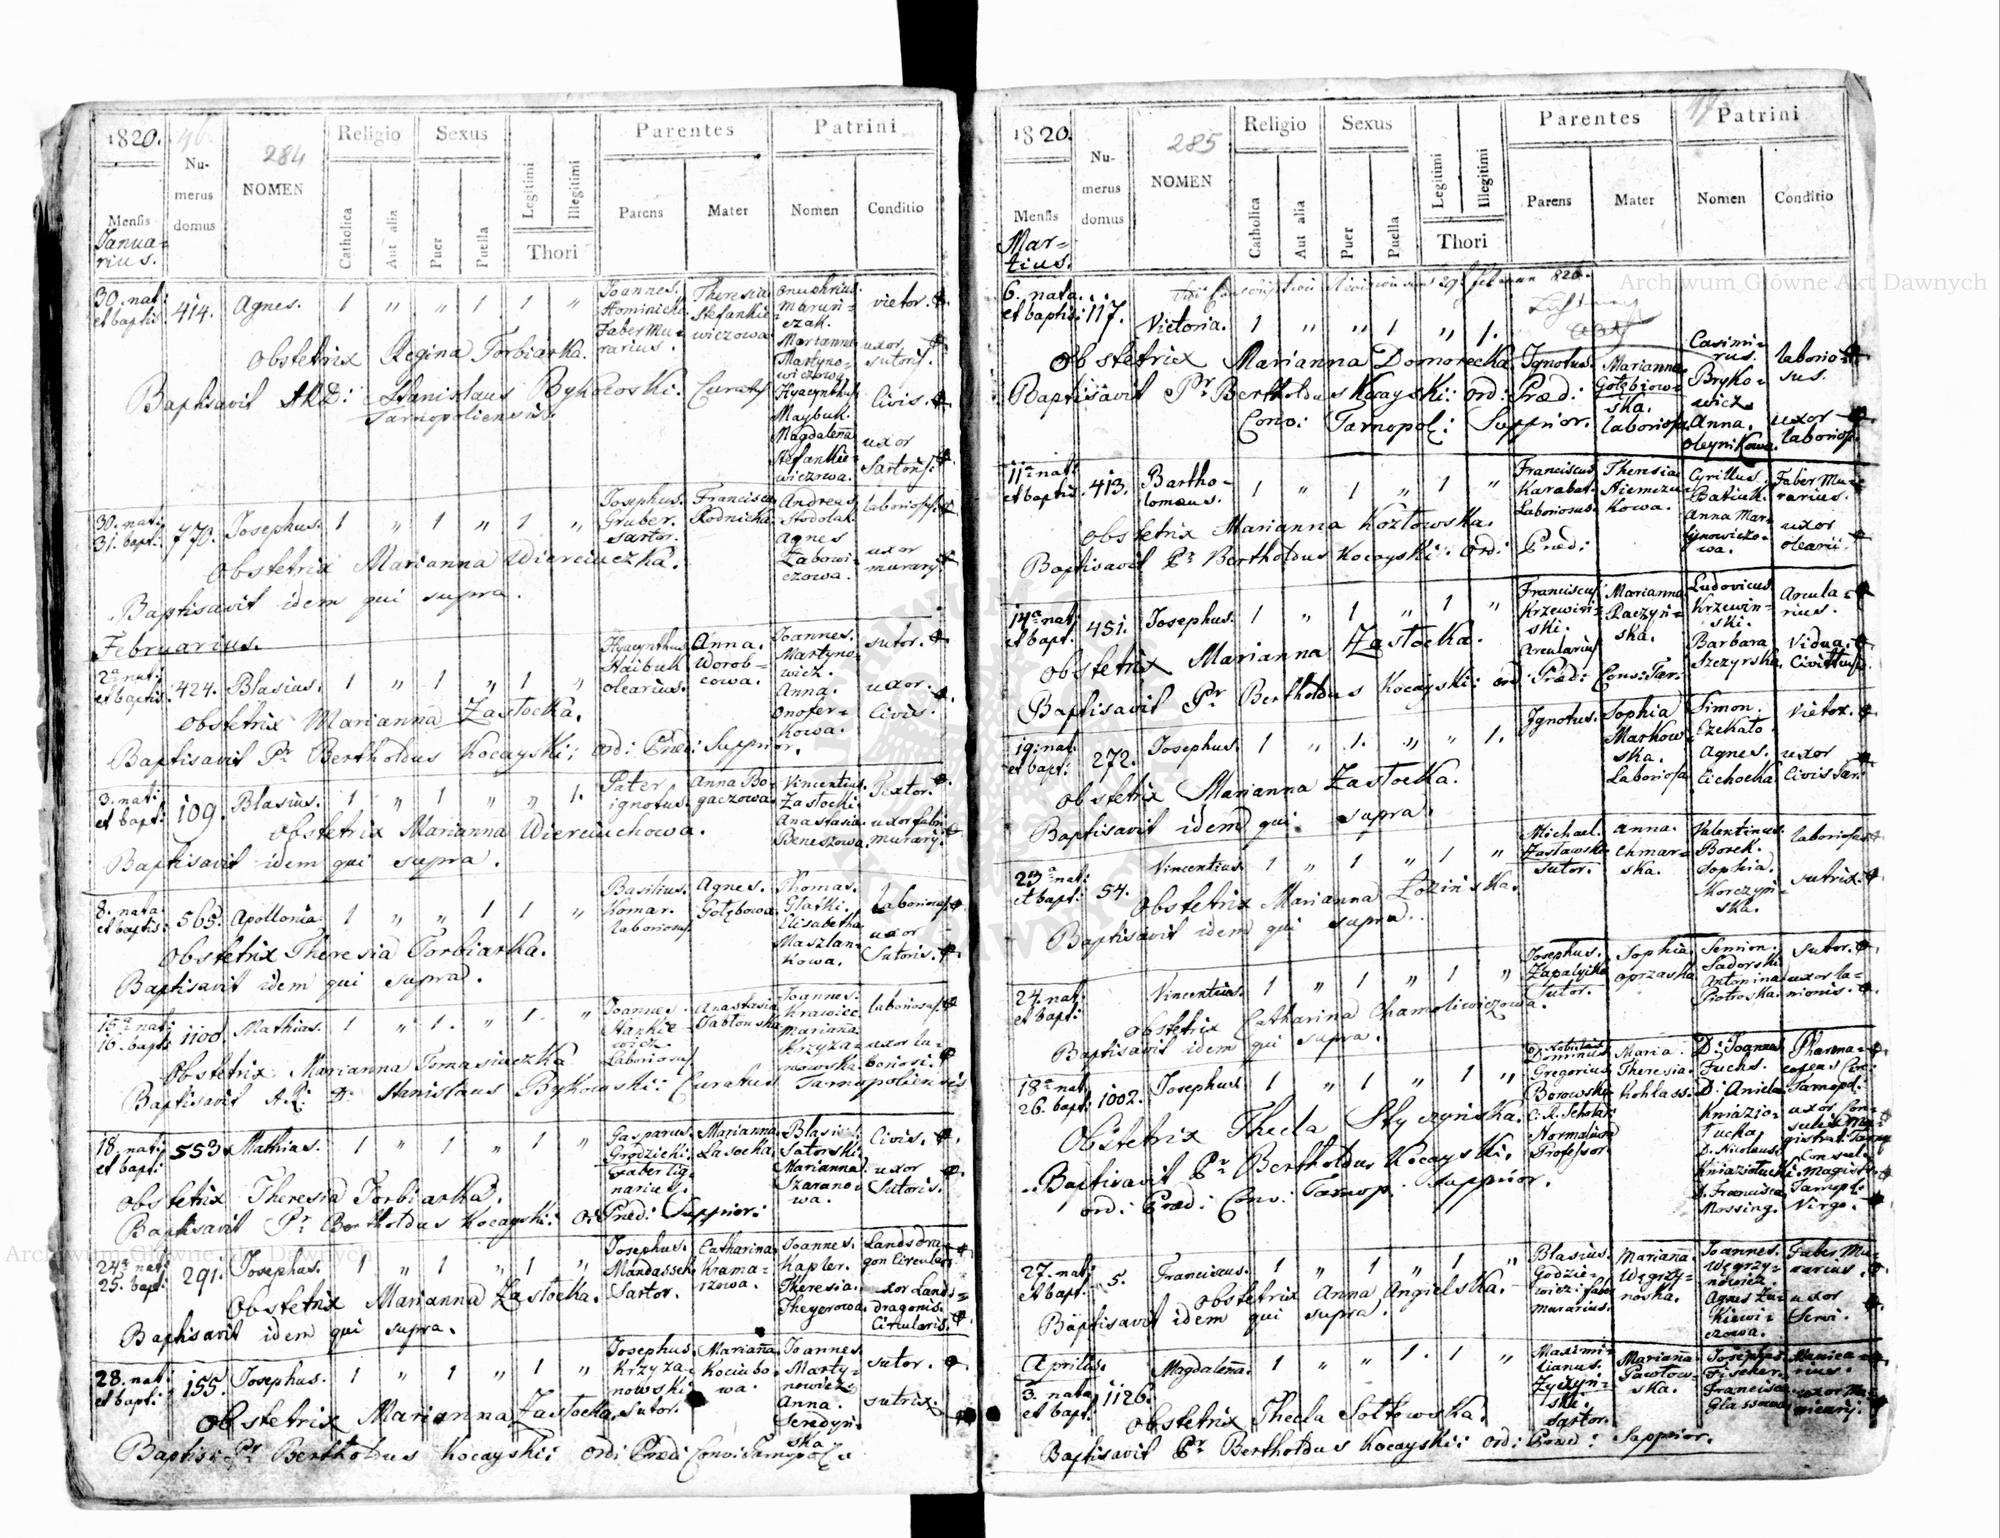 1820. Numerus domus NOMEN 284 Religio Sexus Legitimi Illegitimi Parentes Patrini
Mensis Catholica Aut alia Puer Puella Thori Parens Mater Nomen Conditio
Januarius.
30. nat: et baptis: 414. Agnes. 1 " " 1 1 " Joannes. Faber Murarius. Theresia Stefankiewiczowa Onuphrius vietor.
Obstetrix Regina Torbiarka. Marianna Martynowiczowa uxor sutoris.
Baptisavit ARD: Stanislaus Bykowski: Curat Hyacynthus Maybuk. Civis.
Tarnopoliensis. Magdalena Stefankiewiczowa. uxor Sartoris.
30. nat: 31. bapt: 770. Josephus. 1 " 1 " 1 " Josephus. Gruber. Sartor. Francisca Rodnicka Andreas Stodolak laboriosus.
Obstetrix Marianna Wierciuczka. Agnes uxor murary.
Baptisavit idem qui supra.
Februarius.
2a nat: et baptis: 424. Blasius. 1 " 1 " 1 " Hyacynthus Haibuk olearius. Anna. Worobcowa. Joannes. Martynowicz. sutor.
Obstetrix Marianna Zastocka. Anna. Onoferkowa. uxor. Civis.
Baptisavit Pr Bertholdus Kocayski: Ord: Præd: Supprior.
3. nat: et bapt: 109. Blasius. 1 " 1 " " 1. Pater ignotus. Anna Bogaczowa Vincentius Zastocki. Textor.
Obstetrix Marianna Wierciuchowa. Anastasia Beneszowa. uxor fabri murary.
Baptisavit idem qui supra.
8. nata et baptis: 565. Apollonia 1 " " 1 1 " Basilius. Komar. laboriosus. Agnes. Gołębowa Thomas. Glatki. Laboriosus
Obstetrix Theresia Torbiarka. Elisabetha Maszlankowa. uxor Sutoris.
Baptisavit idem qui supra.
15a nat: 16. bapt: 1100. Mathias. 1 " 1. " 1. " Joannes. Stankiewicz Laboriosus Anastasia Jabłonska Joannes. Krawiec. laboriosus.
Obstetrix Marianna Tomasiuczka Marianna Krzyzanowska uxor laboriosi.
Baptisavit A.R: D: Stanislaus Bykowski: Curatus Tarnopoliensis
18. nat: et bapt: 553. Mathias. 1 " 1 " 1 " Gasparus. Grodzicki. Faber lignarius. Marianna Lasocka. Blasius Satorski Civis.
Obstetrix Theresia Torbiarka. Marianna Szaranowa. uxor Sutoris.
Baptisavit Pr Bertholdus Kocayski: Ord: Præd: Supprior:
24a nat: 25. bapt: 291. Josephus. 1 " 1 " 1 " Josephus. Mandassek. Sartor. Catharina Kramarzowa. Joannes. Kapler. Landsdragon Circularis
Obstetrix Marianna Zastocka. Theresia. Theyerowa uxor Landsdragonis. Circularis.
Baptisavit idem qui supra.
28. nat: et bapt: 155. Josephus. 1 " 1 " 1 " Josephus Krzyzanowski sutor. Marianna Kociubowa. Joannes. Martynowicz sutor.
Obstetrix Marianna Zastocka. Anna. Seredynska sutrix.
Baptis: Pr Bertholdus Kocayski: Ord: Præd: Conv: Tarnopol:
1820. Numerus domus NOMEN 285 Religio Sexus Legitimi Illegitimi Parentes Patrini
Mensis Catholica Aut alia Puer Puella Thori Parens Mater Nomen Conditio
Martius.
6. nata et baptis: 117. Victoria. 1 " " 1 " 1.
Obstetrix Marianna Domorecka Ignotus. Marianna Gołębiowska. laboriosa Casimirus. Brykowicz laboriosus.
Baptisavit Pr Bertholdus Kocayski: Ord: Præd:
Conv: Tarnopol: Supprior. Anna. Oleynikowa. uxor laboriosi.
11a nat: et baptis: 413. Bartholomæus. 1 " 1 " 1 " Franciscus Karabat. Laboriosus. Theresia Cyrillus Batiuk. Faber Murarius.
Obstetrix Marianna Kozłowska. Anna Martynowiczowa. uxor olearii.
Baptisavit Pr Bertholdus Kocayski: Ord: Præd:
14a nat: et bapt: 451. Josephus. 1 " 1 " 1 " Franciscus Krzewinski. Arcularius Marianna Raczynska. Ludovicus. Krzewinski. Arcularius.
Obstetrix Marianna Zastocka. Barbara Szczyrska. Vidua. Civittus.
Baptisavit Pr Bertholdus Kocayski: Ord: Præd: Conv: Tar:
19. nat: et bapt: 272. Josephus. 1 " 1. " " 1. Ignotus. Sophia Markowska. Laboriosa Simon. Czekało. vietor.
Obstetrix Marianna Zastocka. Agnes. Cichocka uxor Civis Tar:
Baptisavit idem qui supra.
23a nat: et bapt: 54. Vincentius. 1 " 1 " 1 " Michael. Zastawski Sutor. Anna. Chmarska. Valentinus. Borek. laboriosus
Obstetrix Marianna Łozinska. Sophia. Korczynska. sutrix.
Baptisavit idem qui supra.
24. nat: et bapt: Vincentius. 1 " 1 " 1 " Josephus. Sutor. Sophia Semion. Sadorski sutor.
Obstetrix Catharina Chamoliewiczowa. Antonina Piotroska. uxor lanionis.
Baptisavit idem qui supra.
18a nat: 26. bapt: 1002. Josephus 1 " 1 " 1 " Dominus Gregorius Borowski C.R. Schola: Normalium Professor. Maria. Theresia. Kohlass. D: Joannes Fuchs. Pharmacopeus Circ: Tarnopol:
Obstetrix Thecla Stryczynska. D: Aniela Kniaziolucka. uxor Consulis Magistrat: Tarnop
Baptisavit Pr Bertholdus Kocayski. D. Nicolaus. Kniaziolucki Consul. Magistr: Tarnopol:
Ord: Præd: Conv: Tarnop: Supprior. D. Francisca Mossing. Virgo.
27. nat: et bapt: 5. Franciscus. 1 " 1 " 1 " Blasius. Godziewicz faber murarius. Marianna Węgrzynoska. Joannes. Węgrzynowicz. Faber Murarius.
Obstetrix Anna Angielska. Agnes uxor Servi.
Baptisavit idem qui supra.
Aprilis. 3. nata et bapt: 1126. Magdalena. 1 " " 1. 1 " Maximilianus. Zyczynski. Sartor. Marianna Pawłowska. Josephus. Fischer.
Obstetrix Thecla Sołtowska. Francisca
Baptisavit Pr Bertholdus Kocayski: Ord: Præd: Supprior.
Archiwum Główne Akt Dawnych
Archiwum Główne Akt Dawnych